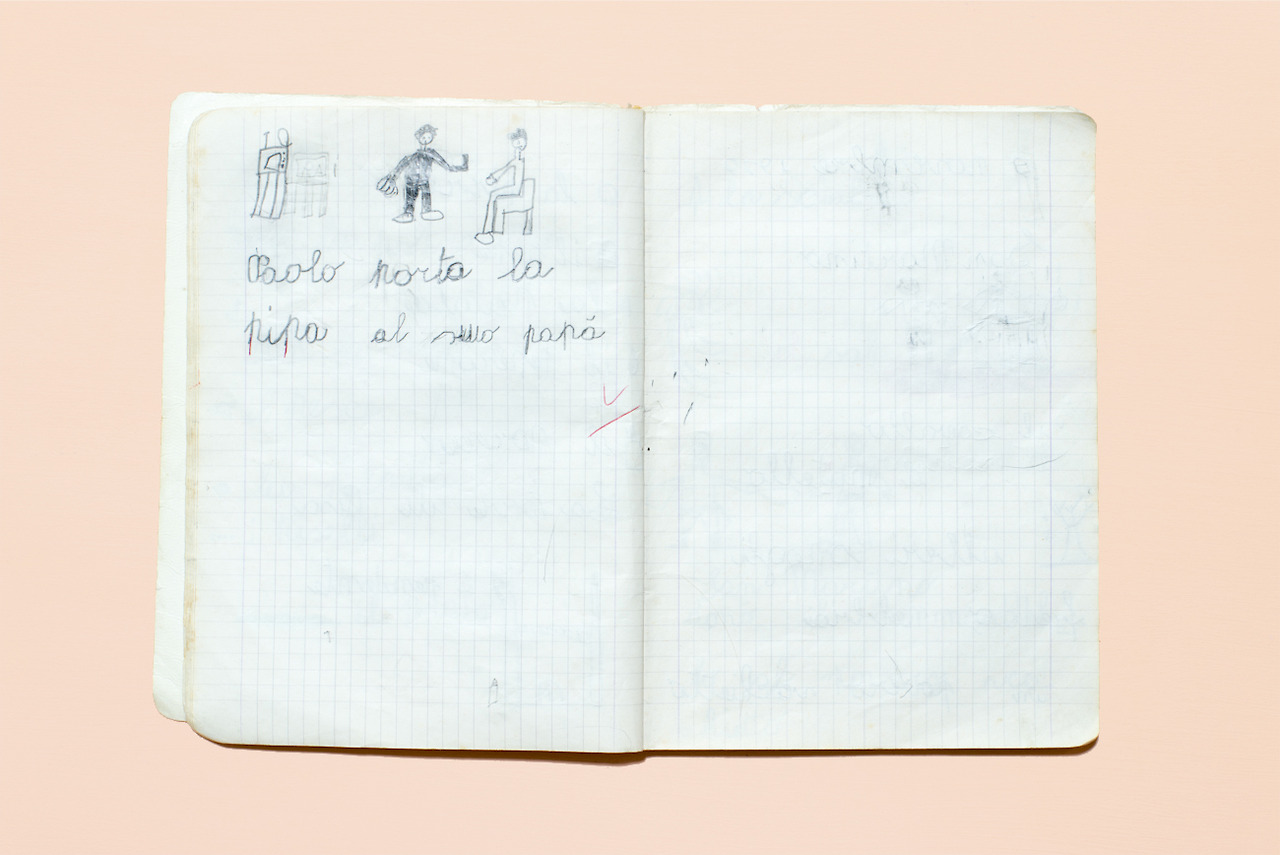 Paolo porta la
pipa al suo papá